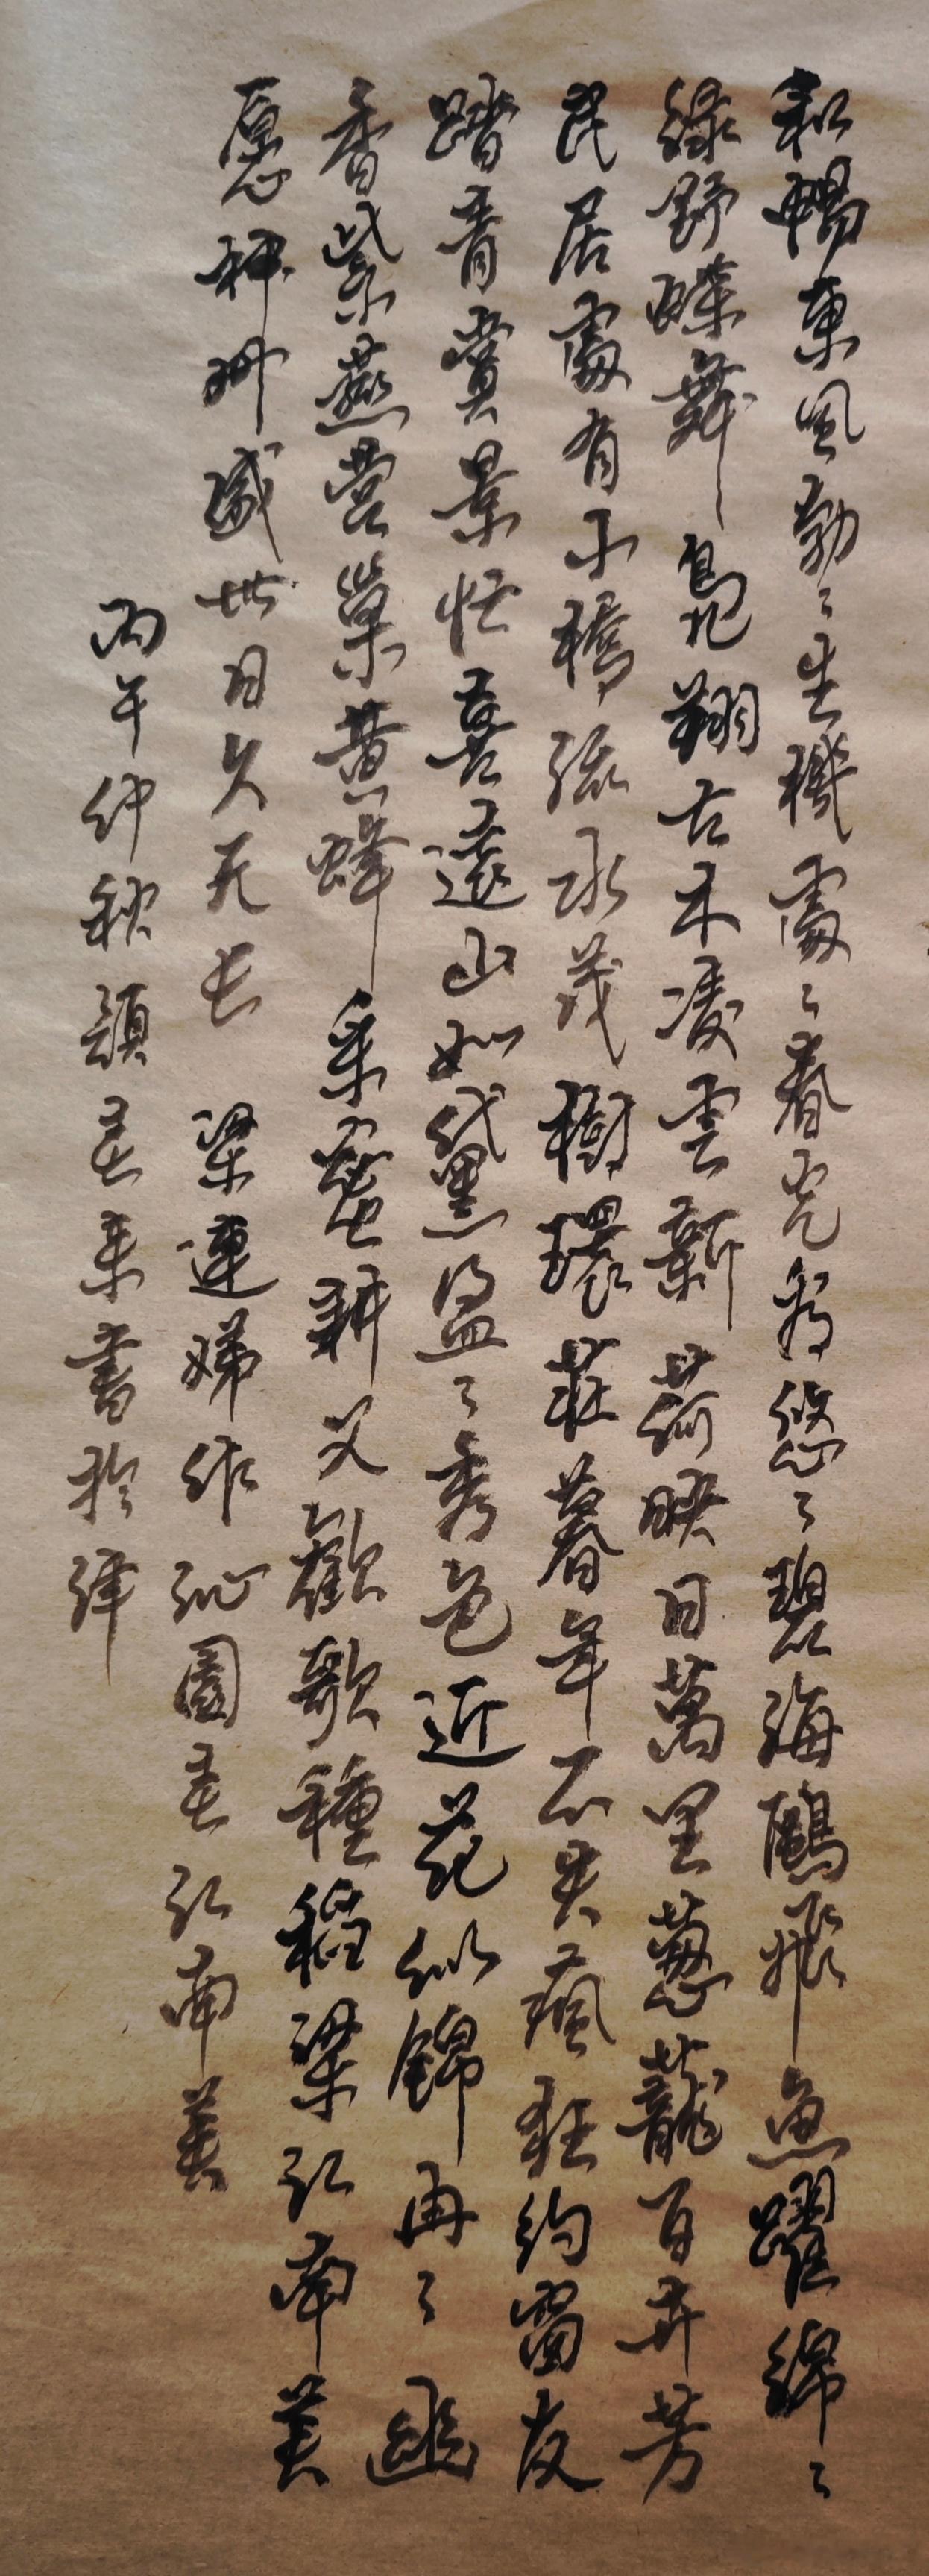 和暢東風勃〻生機處〻春光翁悠〻碧海鷗飛魚躍綿〻
綠野蝶舞鳥翔古木凌雲新荷映日萬里葱蘢百卉芳
民居處有小橋流水茂樹環莊暮年不失瘋狂約窗友
踏青賞景忙喜遠山如黛盈〻秀色近花似錦冉〻幽
香紫燕營巢黄蜂采蜜耕父歡歌種稻粱江南美
愿神州盛世日久天长 梁連娣作沁園春江南美
丙午仲秋題春来書於津